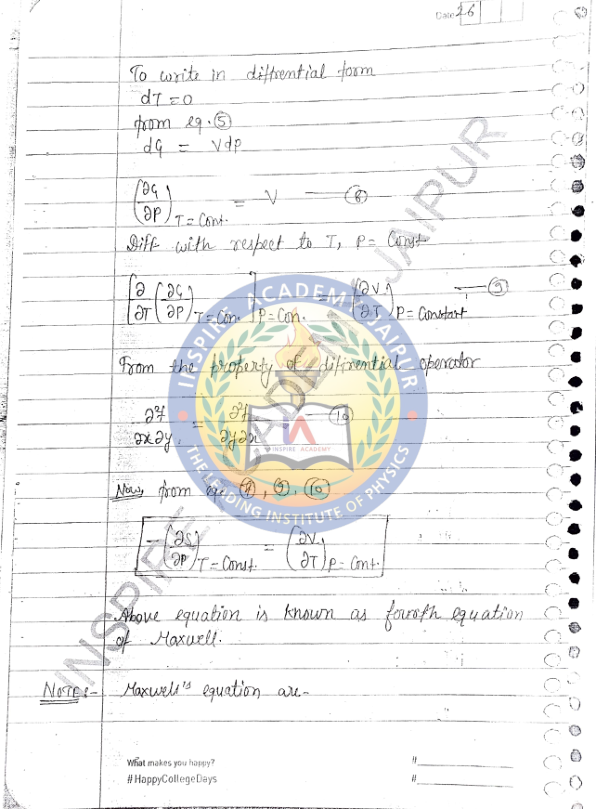 Date 26
To write in diffrential form
dT = 0
from eq. ⑤
dG = Vdp
(∂G/∂P)T = Cons. = V — ⑧
Diff with respect to T, P = Const
[∂/∂T (∂G/∂P)T = Con.]P = Con. = (∂V/∂T)P = Constant — ⑨
From the property of diffrential operator
∂²f/∂x∂y = ∂²f/∂y∂x — ⑩
Now, from eq. ⑦, ⑨, ⑩
-(∂S/∂P)T = Const. = (∂V/∂T)P = Cont.
Above equation is known as fowoth equation
of Maxwell.
NOTE :- Maxwell's equation are-
INSPIRE ACADEMY JAIPUR
INSPIRE ACADEMY, JAIPUR
iA
INSPIRE ACADEMY
THE LEADING INSTITUTE OF PHYSICS
What makes you happy?
#HappyCollegeDays
//
//